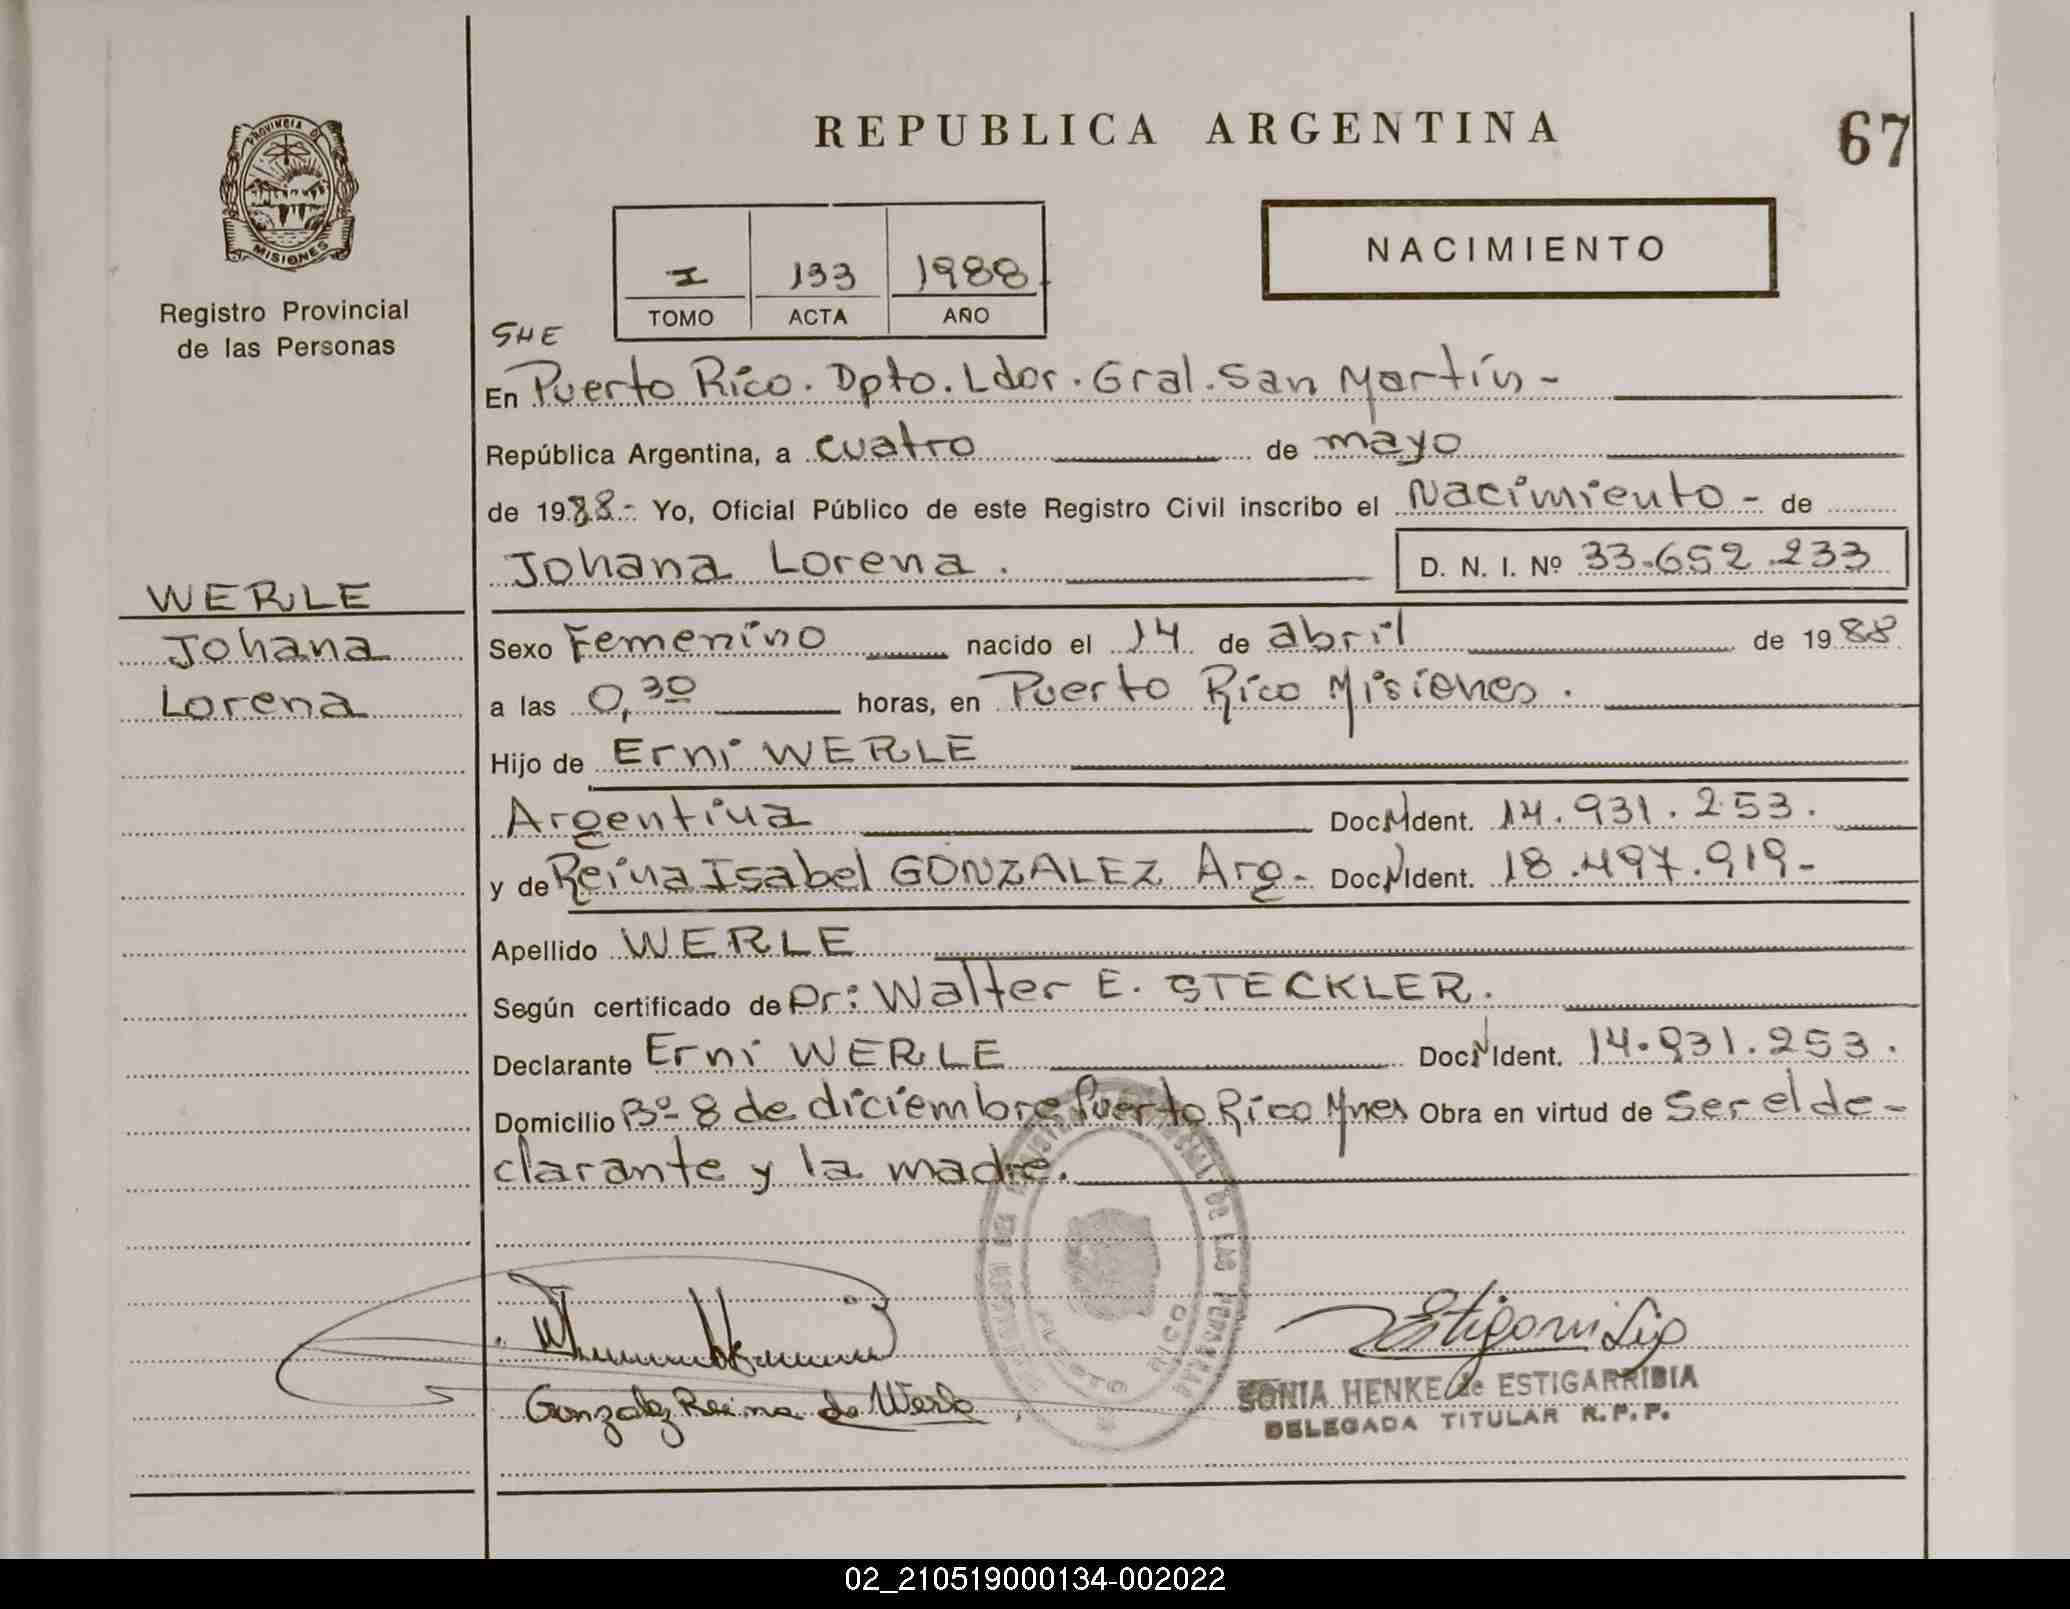 REPUBLICA ARGENTINA
67
PROVINCIA D
MISIONES
Registro Provincial
de las Personas
I 133 1988
TOMO ACTA AÑO
NACIMIENTO
SHE
En Puerto Rico. Dpto. Ldor. Gral. San Martín -
República Argentina, a cuatro de mayo
de 1988.- Yo, Oficial Público de este Registro Civil inscribo el Nacimiento - de
Johana Lorena . D. N. I. Nº 33.652.233
WERLE
Johana
Lorena
Sexo Femenino nacido el 14 de abril de 1988
a las 0,30 horas, en Puerto Rico Misiones .
Hijo de Erni WERLE
Argentina Doc. N Ident. 14.931.253.
y de Reina Isabel GONZALEZ Arg- Doc. N Ident. 18.497.919-
Apellido WERLE
Según certificado de Dr: Walter E. STECKLER.
Declarante Erni WERLE Doc. N Ident. 14.931.253.
Domicilio Bº 8 de diciembre Puerto Rico Mnes Obra en virtud de Ser el de-
clarante y la madre.
DE LAS PERSONAS
PUERTO RICO
Gonzalez Reina de Werle
SONIA HENKE de ESTIGARRIBIA
DELEGADA TITULAR R.P.P.
02_210519000134-002022